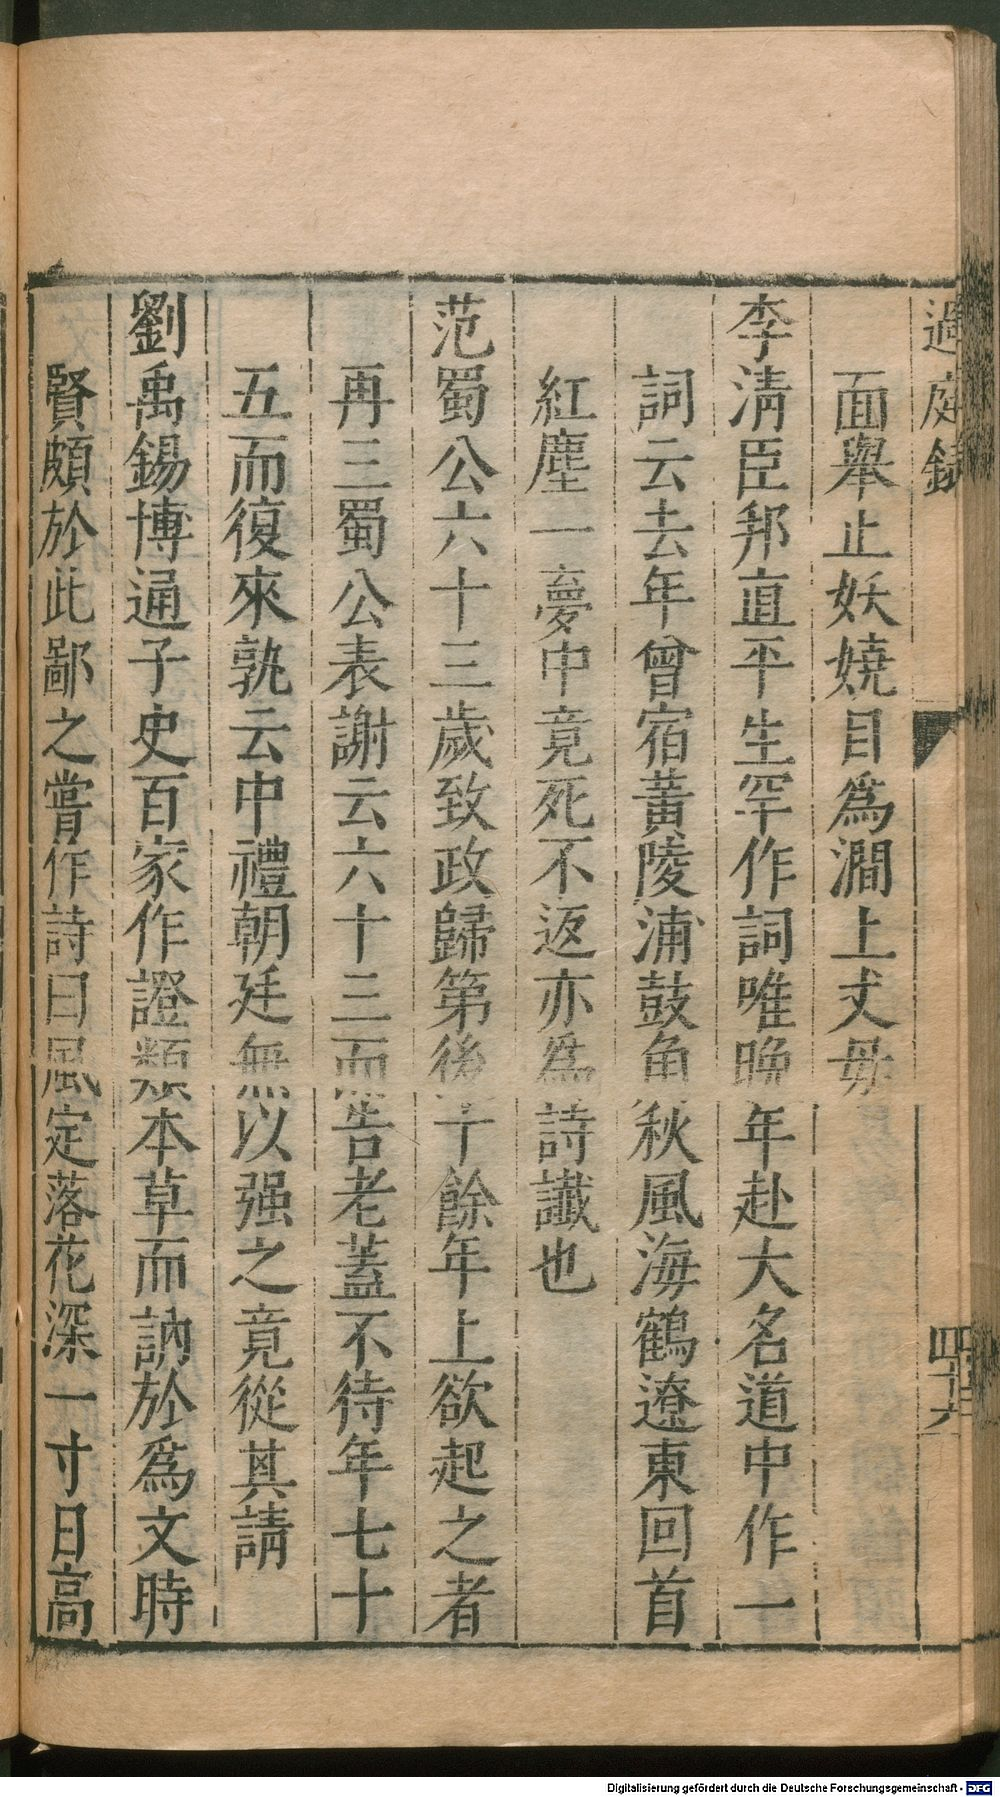 過庭錄
四十六
面舉止妖嬈目為澗上丈母
李淸臣邦直平生罕作詞唯晩年赴大名道中作一
詞云去年曾宿黃陵浦鼓角秋風海鶴遼東回首
紅塵一夢中竟死不返亦爲詩讖也
范蜀公六十三歲致政歸第後十餘年上欲起之者
再三蜀公表謝云六十三而告老蓋不待年七十
五而復來孰云中禮朝廷無以强之竟從其請
劉禹錫博通子史百家作證類本草而訥於爲文時
賢頗於此鄙之嘗作詩曰風定落花深一寸日高
Digitalisierung gefördert durch die Deutsche Forschungsgemeinschaft - DFG